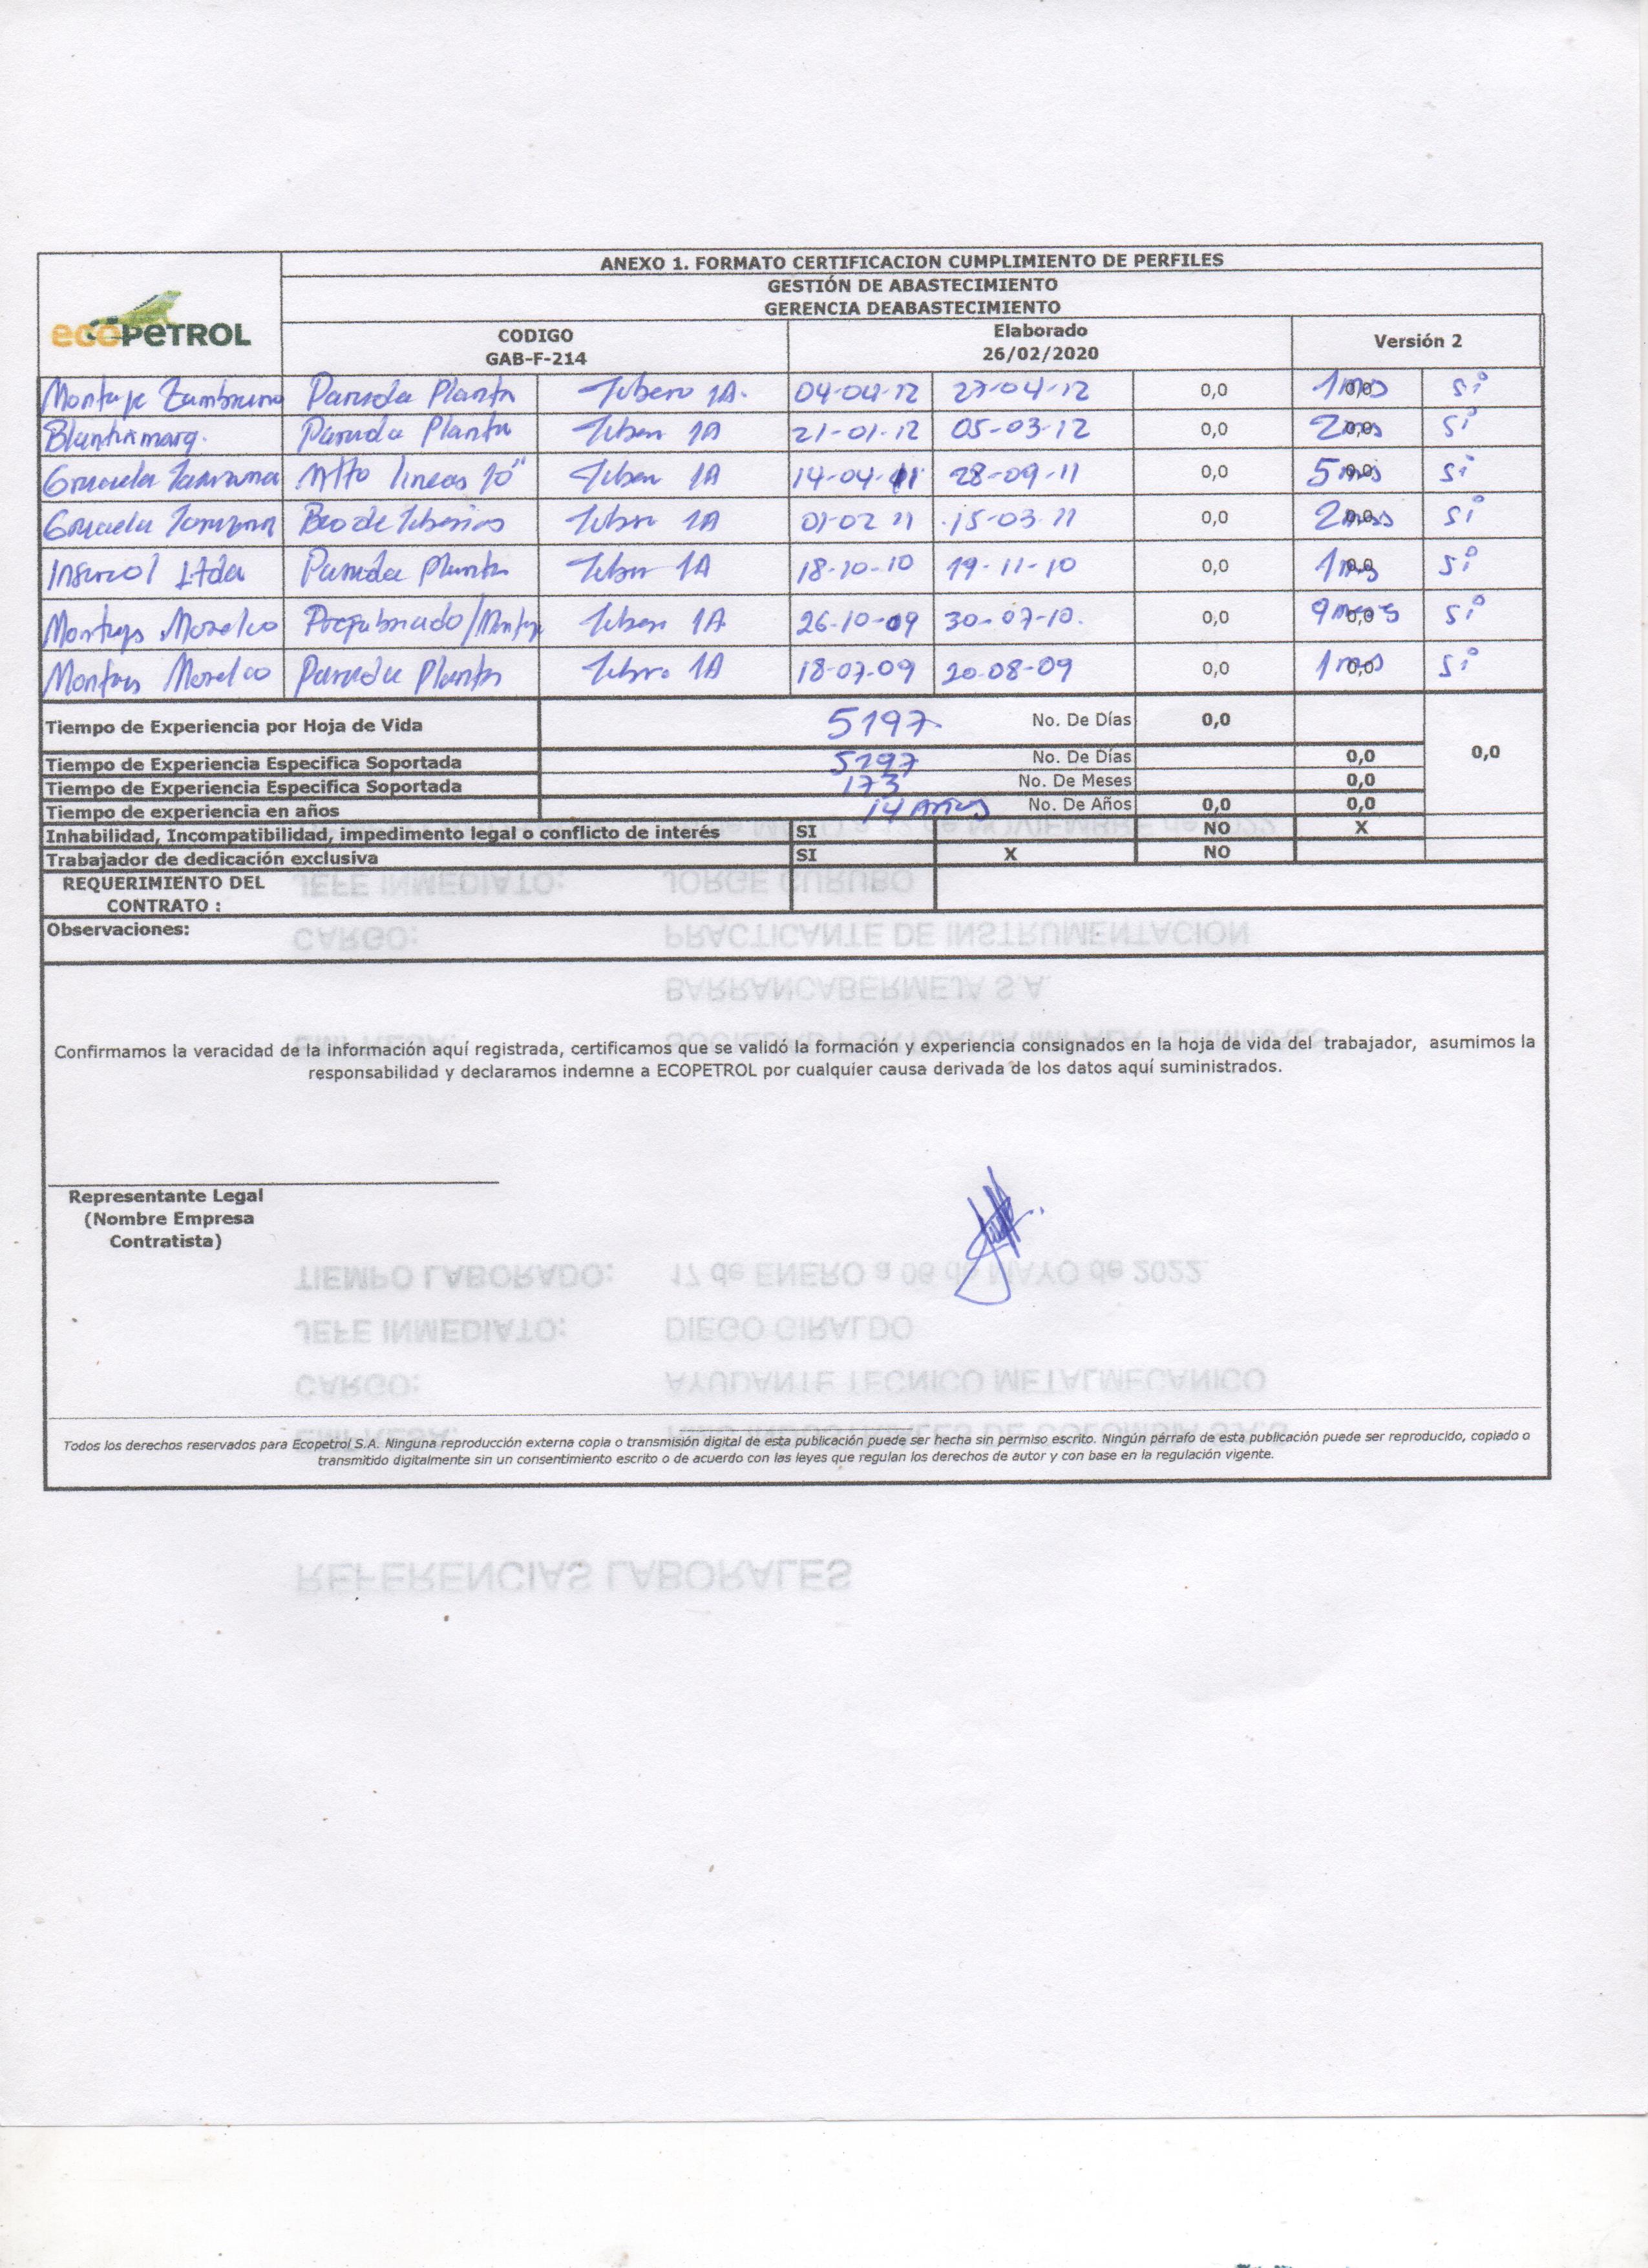 ANEXO 1. FORMATO CERTIFICACION CUMPLIMIENTO DE PERFILES
GESTIÓN DE ABASTECIMIENTO
GERENCIA DEABASTECIMIENTO
ecoPETROL
CODIGO
GAB-F-214
Elaborado
26/02/2020
Versión 2
Montaje Zambrano Parada Planta Tubero 1A. 04-04-12 27-04-12 0,0 1mes 0,0 si
Parada Planta Tubero 1A 21-01-12 05-03-12 0,0 2mes 0,0 si
Mtto lineas 10" Tubero 1A 14-04-11 28-09-11 0,0 5mes 0,0 si
Tubero 1A 01-02 11 15-03-11 0,0 2mes 0,0 si
Insercol Ltda Parada Planta Tubero 1A 18-10-10 19-11-10 0,0 1mes 0,0 si
Montajes Morelco Prefabricado/Montaje Tubero 1A 26-10-09 30-07-10. 0,0 9meses 0,0 si
Montajes Morelco Parada Planta Tubero 1A 18-07-09 20-08-09 0,0 1mes 0,0 si
Tiempo de Experiencia por Hoja de Vida 5197 No. De Días 0,0
0,0
Tiempo de Experiencia Especifica Soportada 5197 No. De Días 0,0
Tiempo de Experiencia Especifica Soportada 173 No. De Meses 0,0
Tiempo de experiencia en años 14 Años No. De Años 0,0 0,0
Inhabilidad, Incompatibilidad, impedimento legal o conflicto de interés SI NO X
Trabajador de dedicación exclusiva SI X NO
REQUERIMIENTO DEL
CONTRATO :
Observaciones:
Confirmamos la veracidad de la información aquí registrada, certificamos que se validó la formación y experiencia consignados en la hoja de vida del trabajador, asumimos la
responsabilidad y declaramos indemne a ECOPETROL por cualquier causa derivada de los datos aquí suministrados.
Representante Legal
(Nombre Empresa
Contratista)
Todos los derechos reservados para Ecopetrol S.A. Ninguna reproducción externa copia o transmisión digital de esta publicación puede ser hecha sin permiso escrito. Ningún párrafo de esta publicación puede ser reproducido, copiado o
transmitido digitalmente sin un consentimiento escrito o de acuerdo con las leyes que regulan los derechos de autor y con base en la regulación vigente.